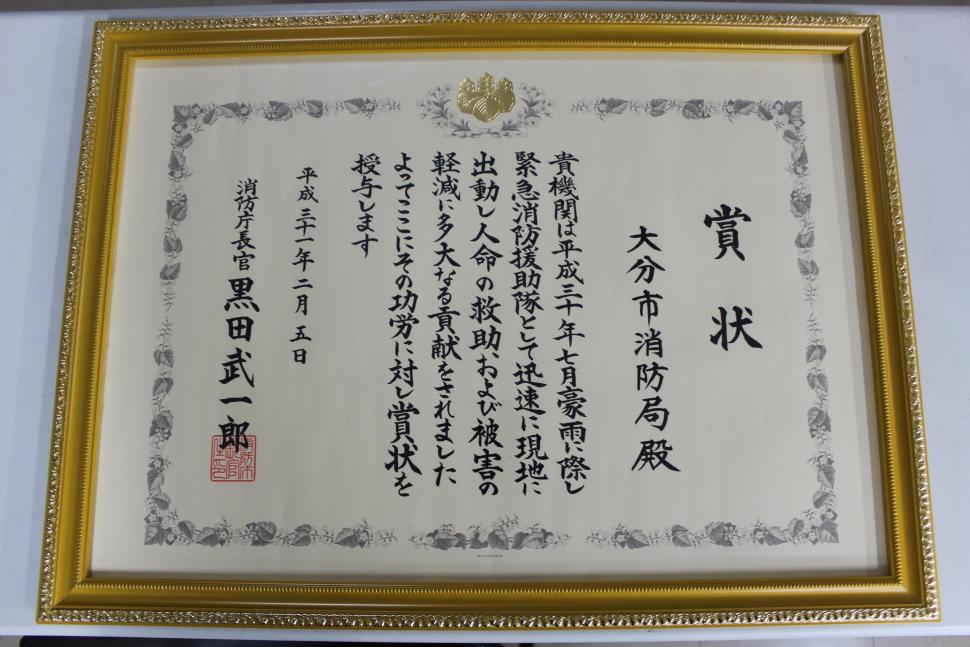 賞状
大分市消防局殿
貴機関は平成三十年七月豪雨に際し
緊急消防援助隊として迅速に現地に
出動し人命の救助および被害の
軽減に多大なる貢献をされました
よってここにその功労に対し賞状を
授与します
平成三十一年二月五日
消防庁長官 黒田武一郎